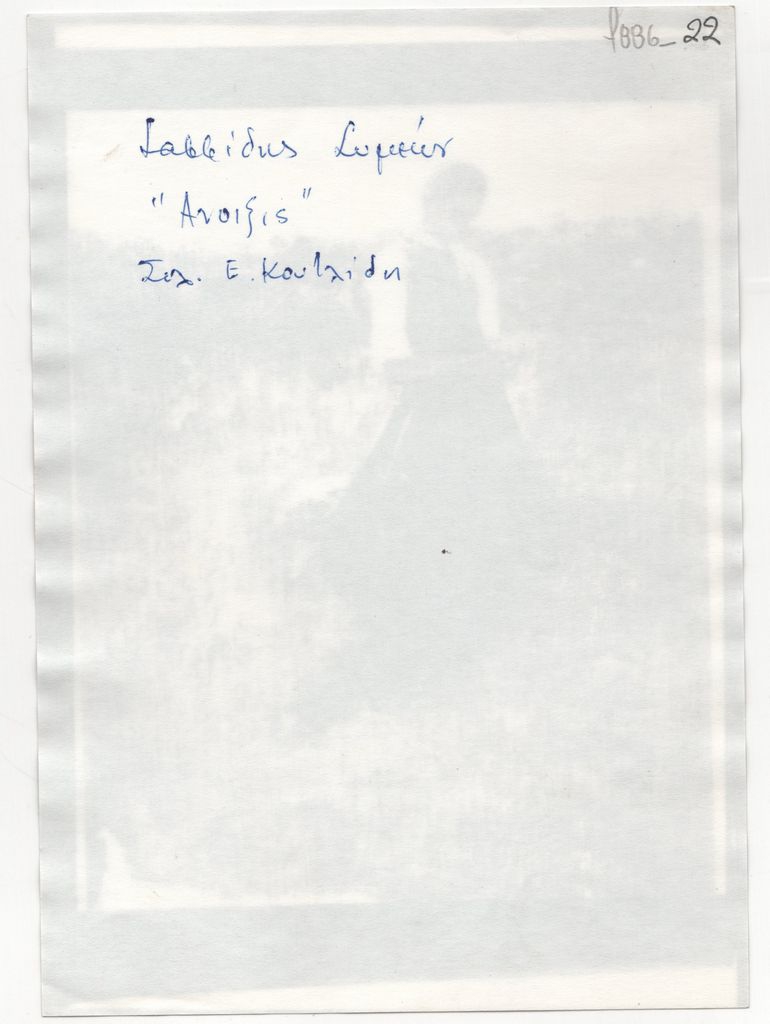 1886_22
Σαββίδης Συμεών
"Ανοιξις"
Συλ. Ε. Κουτλίδη